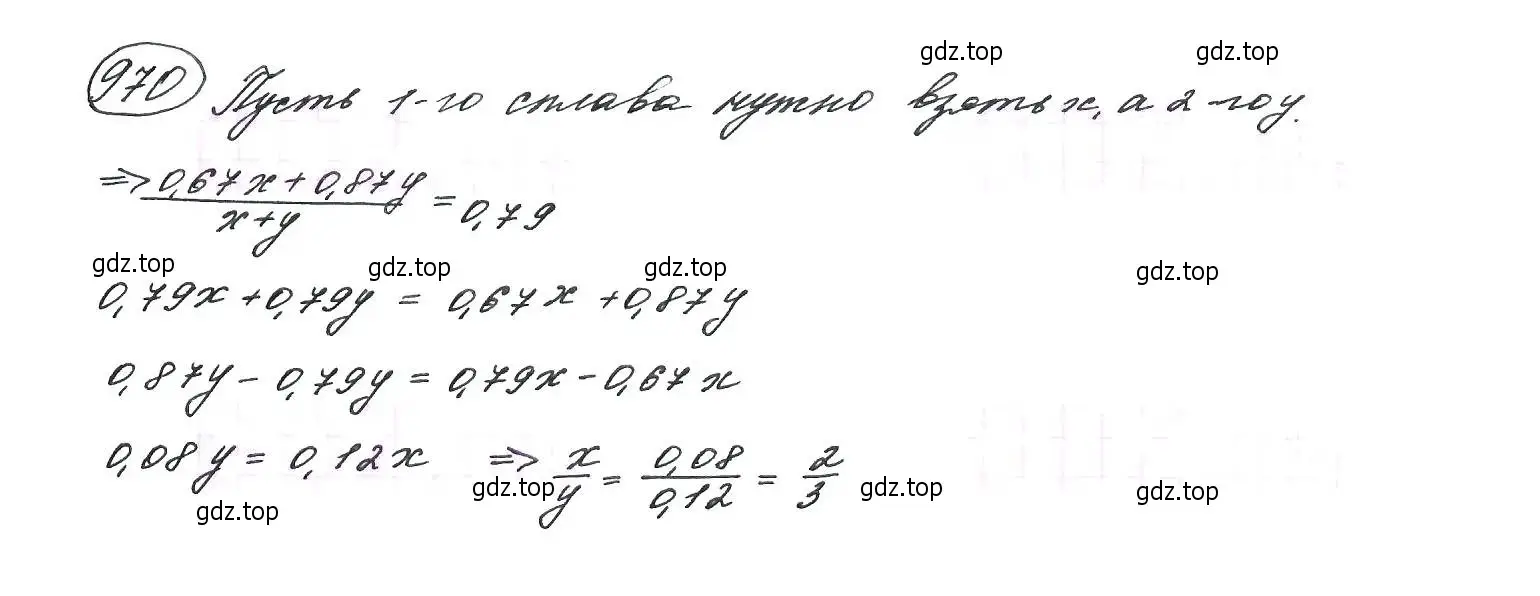 gdz.top gdz.top
970 Пусть 1-го сплава нужно взять x, а 2-го y.
=> (0,67x + 0,87y)/(x+y) = 0,79
gdz.top gdz.top gdz.top gdz.top
0,79x + 0,79y = 0,67x + 0,87y
0,87y - 0,79y = 0,79x - 0,67x
0,08y = 0,12x => x/y = 0,08/0,12 = 2/3
gdz.top gdz.top gdz.top
gdz.top